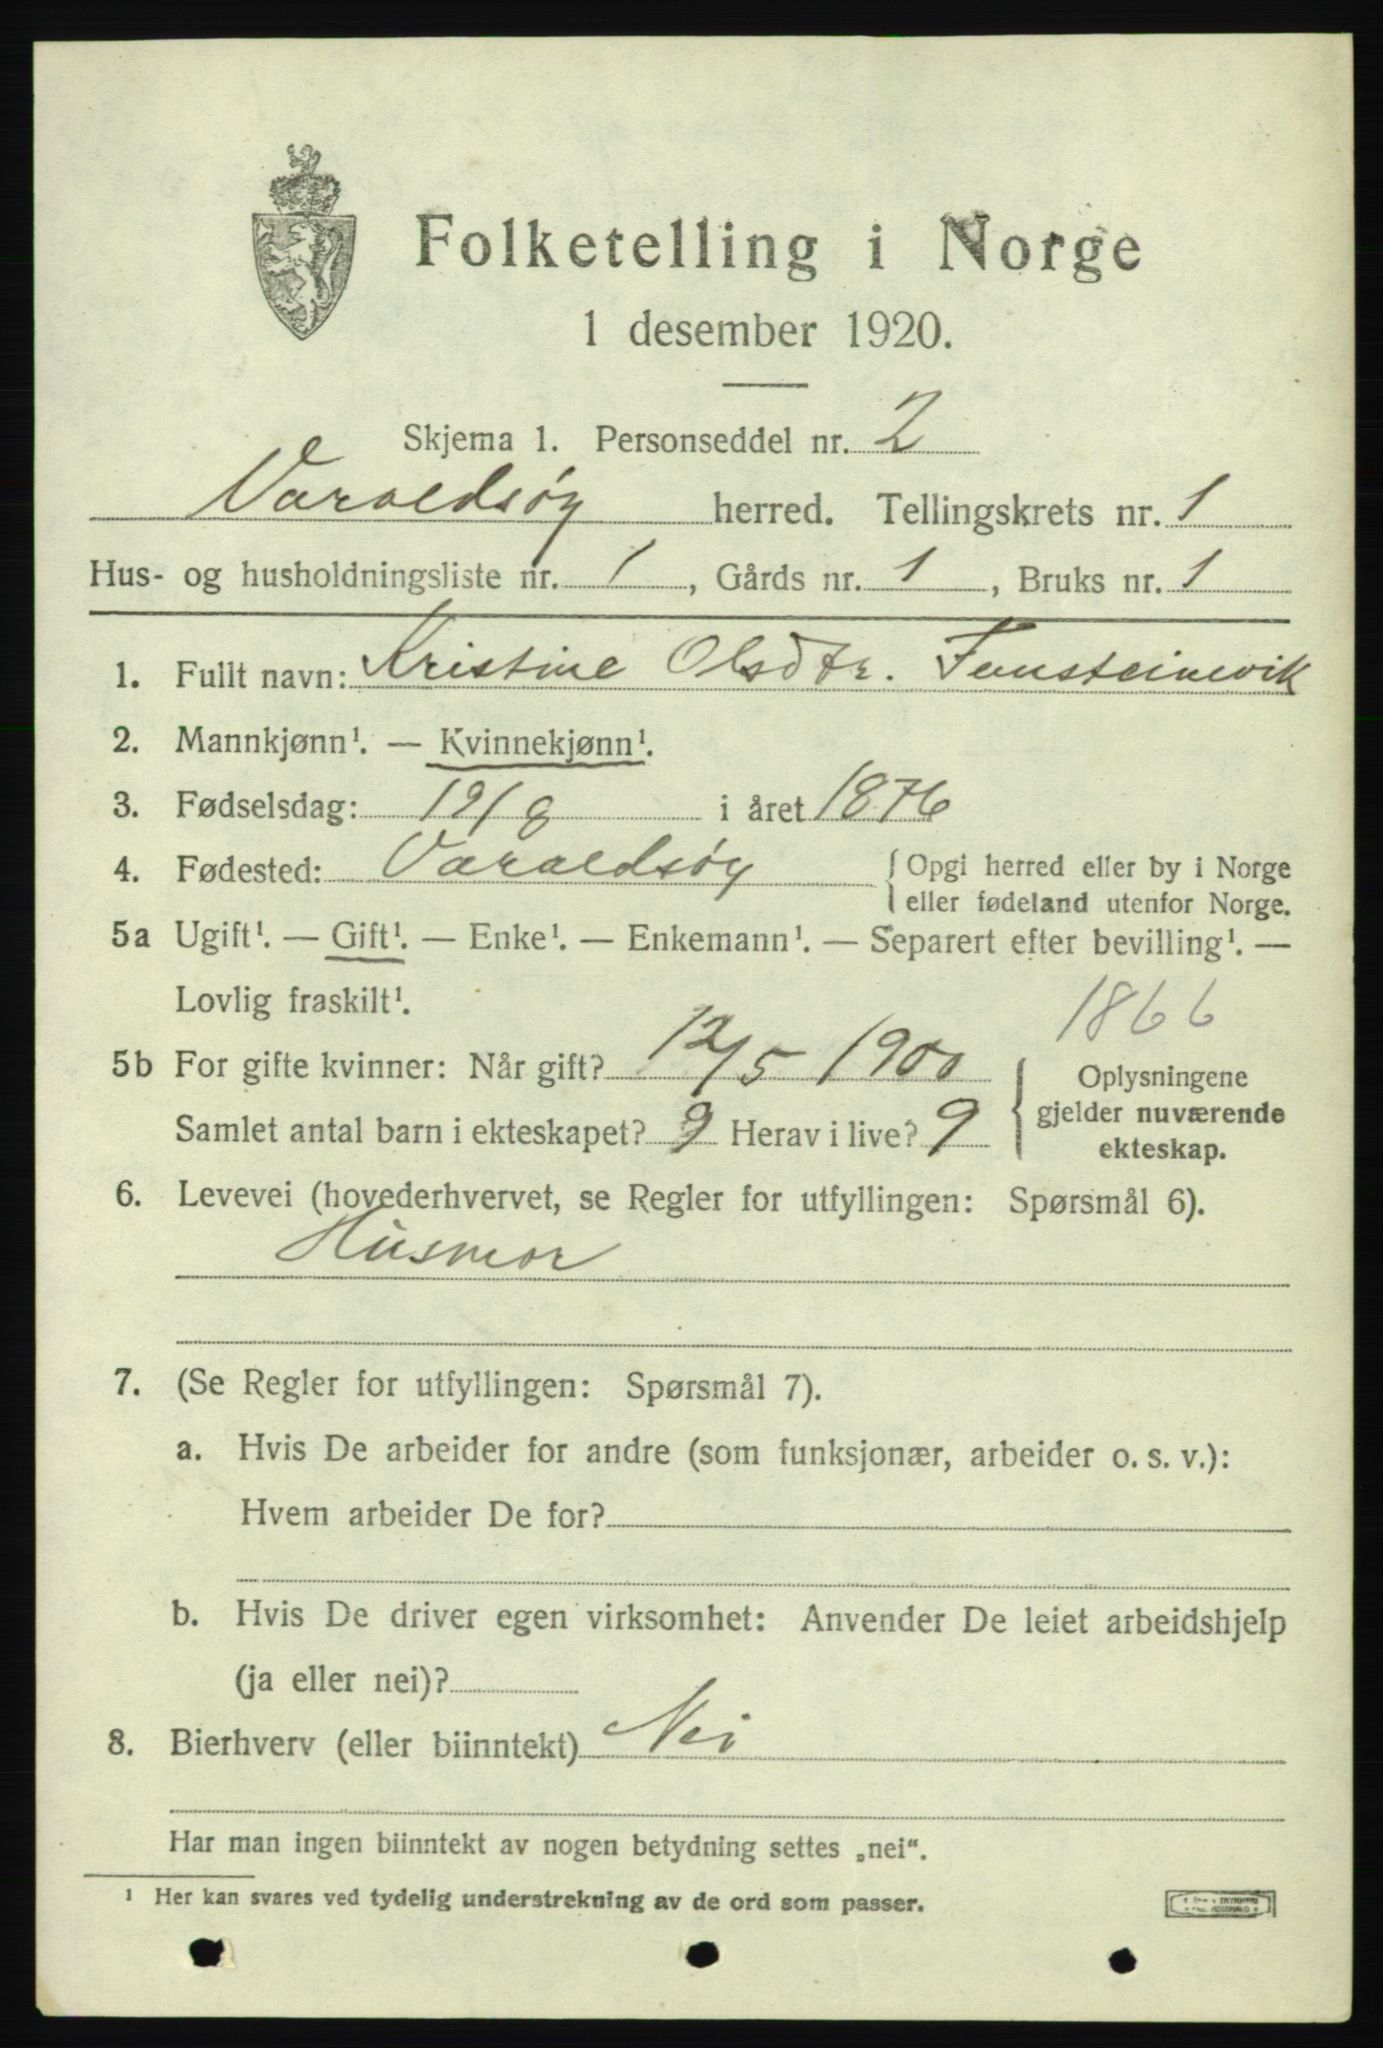 Folketelling i Norge
1 desember 1920.
Skjema 1. Personseddel nr. 2
Varaldsøy herred. Tellingskrets nr. 1
Hus- og husholdningsliste nr. 1, Gårds nr. 1, Bruks nr. 1
1. Fullt navn: Kristine Olsdtr. Funsteinevik
2. Mannkjønn¹. — Kvinnekjønn¹.
3. Fødselsdag: 19/8 i året 1876
4. Fødested: Varaldsøy { Opgi herred eller by i Norge
eller fødeland utenfor Norge.
5a Ugift¹. — Gift¹. — Enke¹. — Enkemann¹. — Separert efter bevilling¹. —
Lovlig fraskilt¹.
1866
5b For gifte kvinner: Når gift? 12/5 1900
Samlet antal barn i ekteskapet? 9 Herav i live? 9
{ Oplysningene
gjelder nuværende
ekteskap.
6. Levevei (hovederhvervet, se Regler for utfyllingen: Spørsmål 6).
Husmor
7. (Se Regler for utfyllingen: Spørsmål 7).
a. Hvis De arbeider for andre (som funksjonær, arbeider o. s. v.):
Hvem arbeider De for?
b. Hvis De driver egen virksomhet: Anvender De leiet arbeidshjelp
(ja eller nei)?
8. Bierhverv (eller biinntekt) Nei
Har man ingen biinntekt av nogen betydning settes „nei“.
¹ Her kan svares ved tydelig understrekning av de ord som passer.